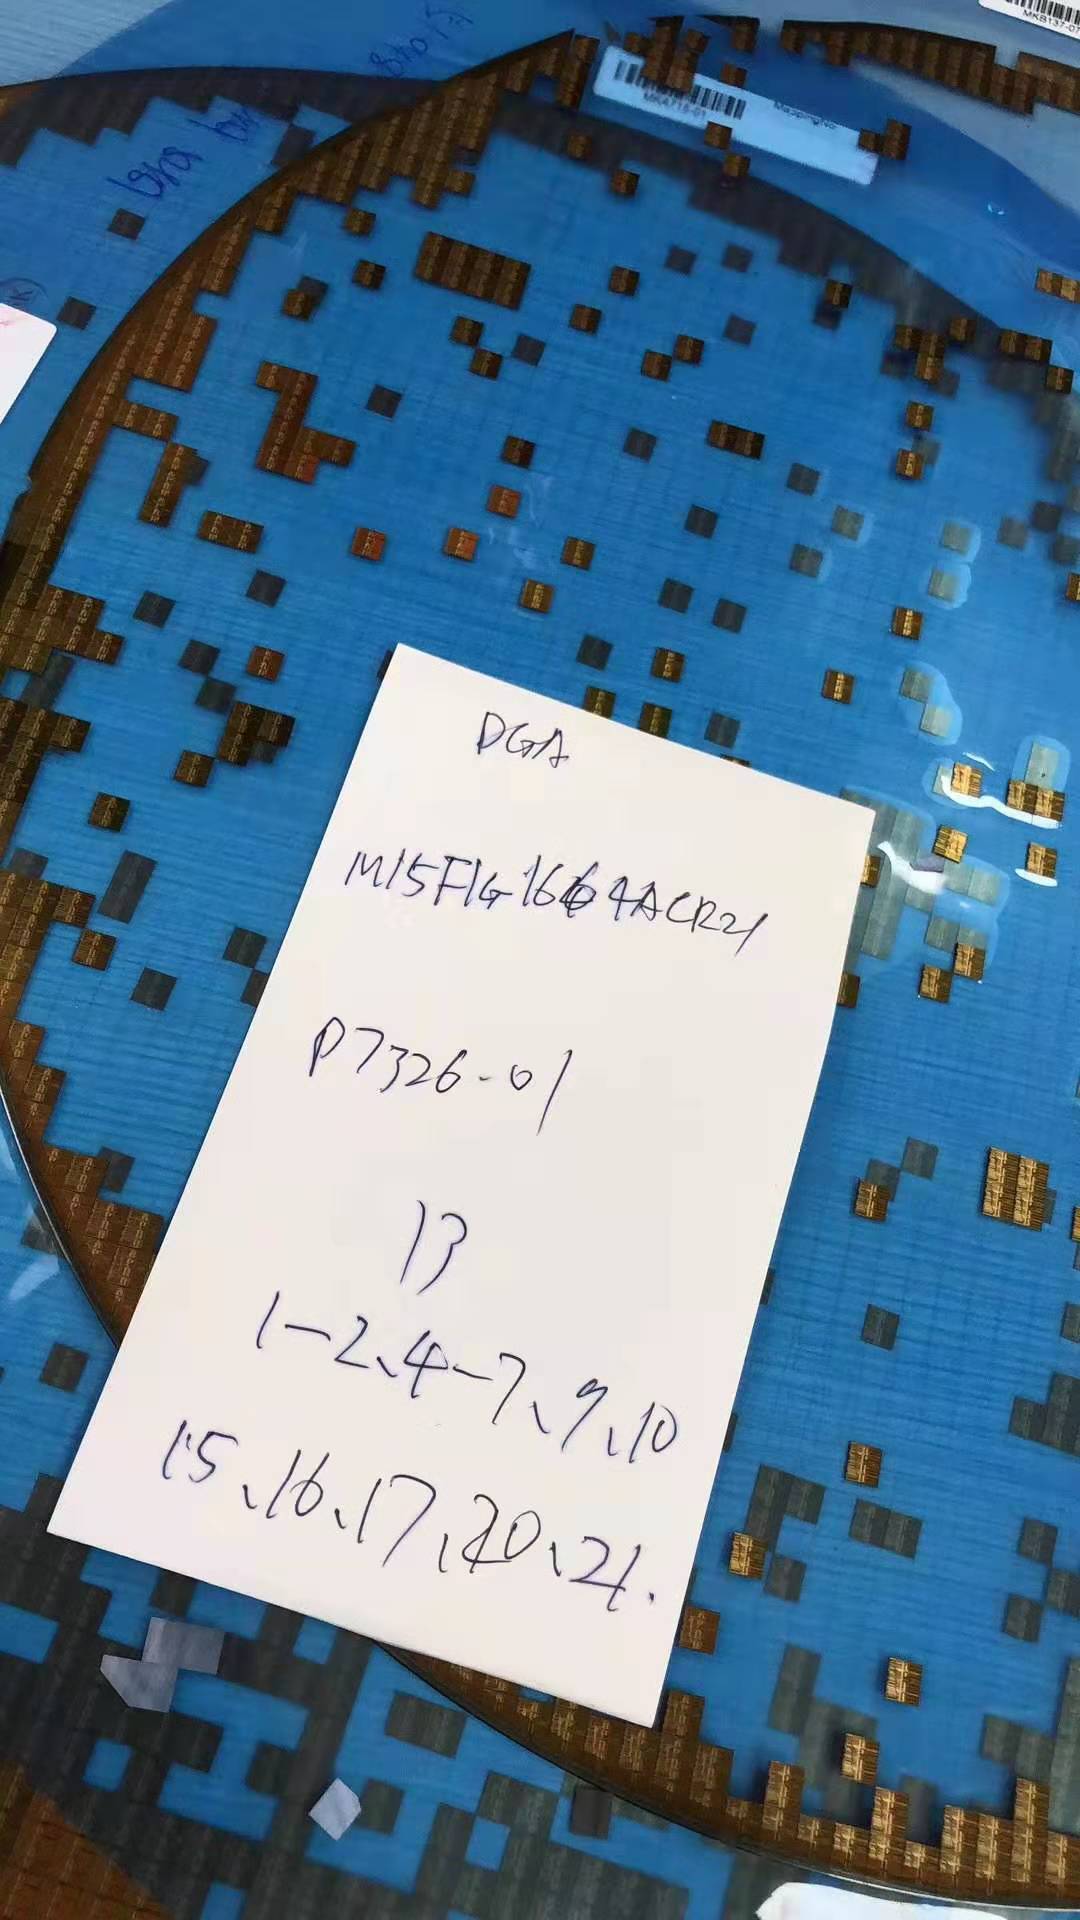 MKB137-07
MappingNo.
MKA715-01
DGA
M15F1G1664ACR21
P7326-01
13
1-2、4-7、9、10
15、16、17、20、21.